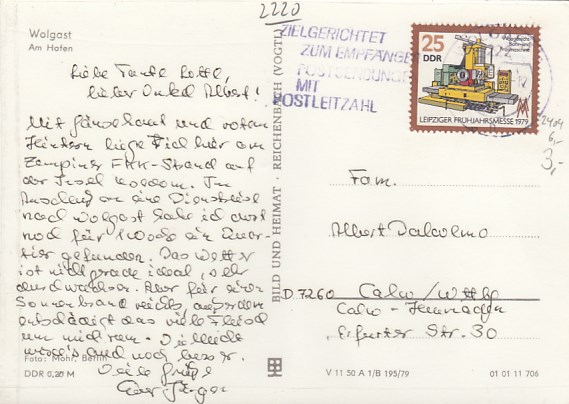 2220
Wolgast
Am Hafen
Liebe Tante Lottl,
lieber Onkel Albert!
Mit Gänsehaut und rotem
Hintern liege ich hier am
Zempiner FKK-Strand auf
der Insel Usedom. Im
Anschluß an eine Dienstreise
nach Wolgast habe ich erst
noch für 1 Woche ein Quar-
tier gefunden. Das Wetter
ist nicht grade ideal, sehr
durchwachsen. Aber für einen
Sonnenbrand reichts, außerdem
entschädigt das viele Fleisch
um mich rum. Vielleicht
wird's auch noch besser.
Viele Grüße
Foto: Mohr, Berlin
DDR 0,20 M
BILD UND HEIMAT · REICHENBACH (VOGTL)
ZIELGERICHTET
ZUM EMPFÄNGER
POSTSENDUNGEN
MIT
POSTLEITZAHL
25
DDR
LEIPZIGER FRÜHJAHRSMESSE 1979
2404
6,-
3,-
Fam.
Albert Dalcolmo
D 7260 Calw/Wttbg
Calw - Heumaden
Erfurter Str. 30
V 11 50 A 1/B 195/79
01 01 11 706